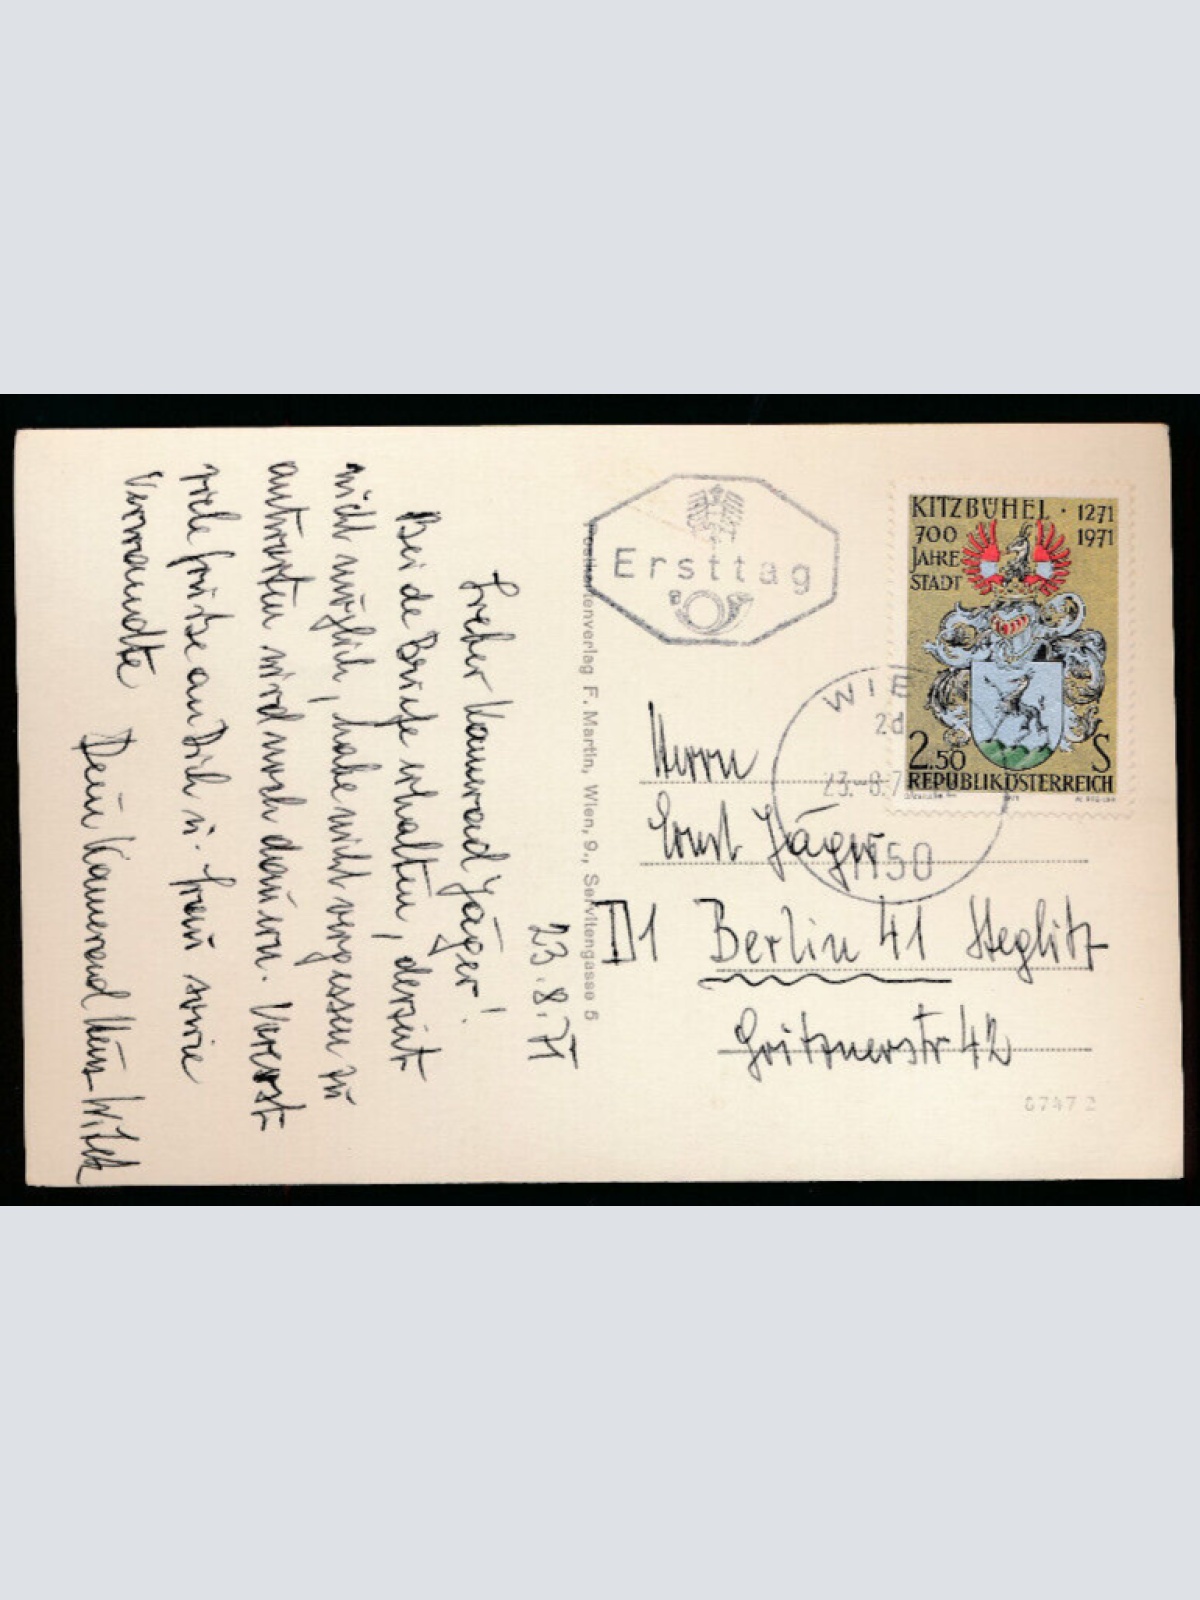 23.8.71
Lieber Kamerad Jäger!
Beide Briefe erhalten, derzeit
nicht möglich, habe nicht vergessen zu
antworten wird noch dauern. Vorerst
viele Grüße an Dich u. Frau sowie
Verwandte
Dein Kamerad
Postkartenverlag F. Martin, Wien, 9., Servitengasse 5
Ersttag
KITZBÜHEL · 1271
700 1971
JAHRE
STADT
2.50 S
REPUBLIK ÖSTERREICH
WIE
2d
23.-8.7
1150
Herrn
Ernst Jäger
D1 Berlin 41 Steglitz
Gritznerstr 42
6747 2